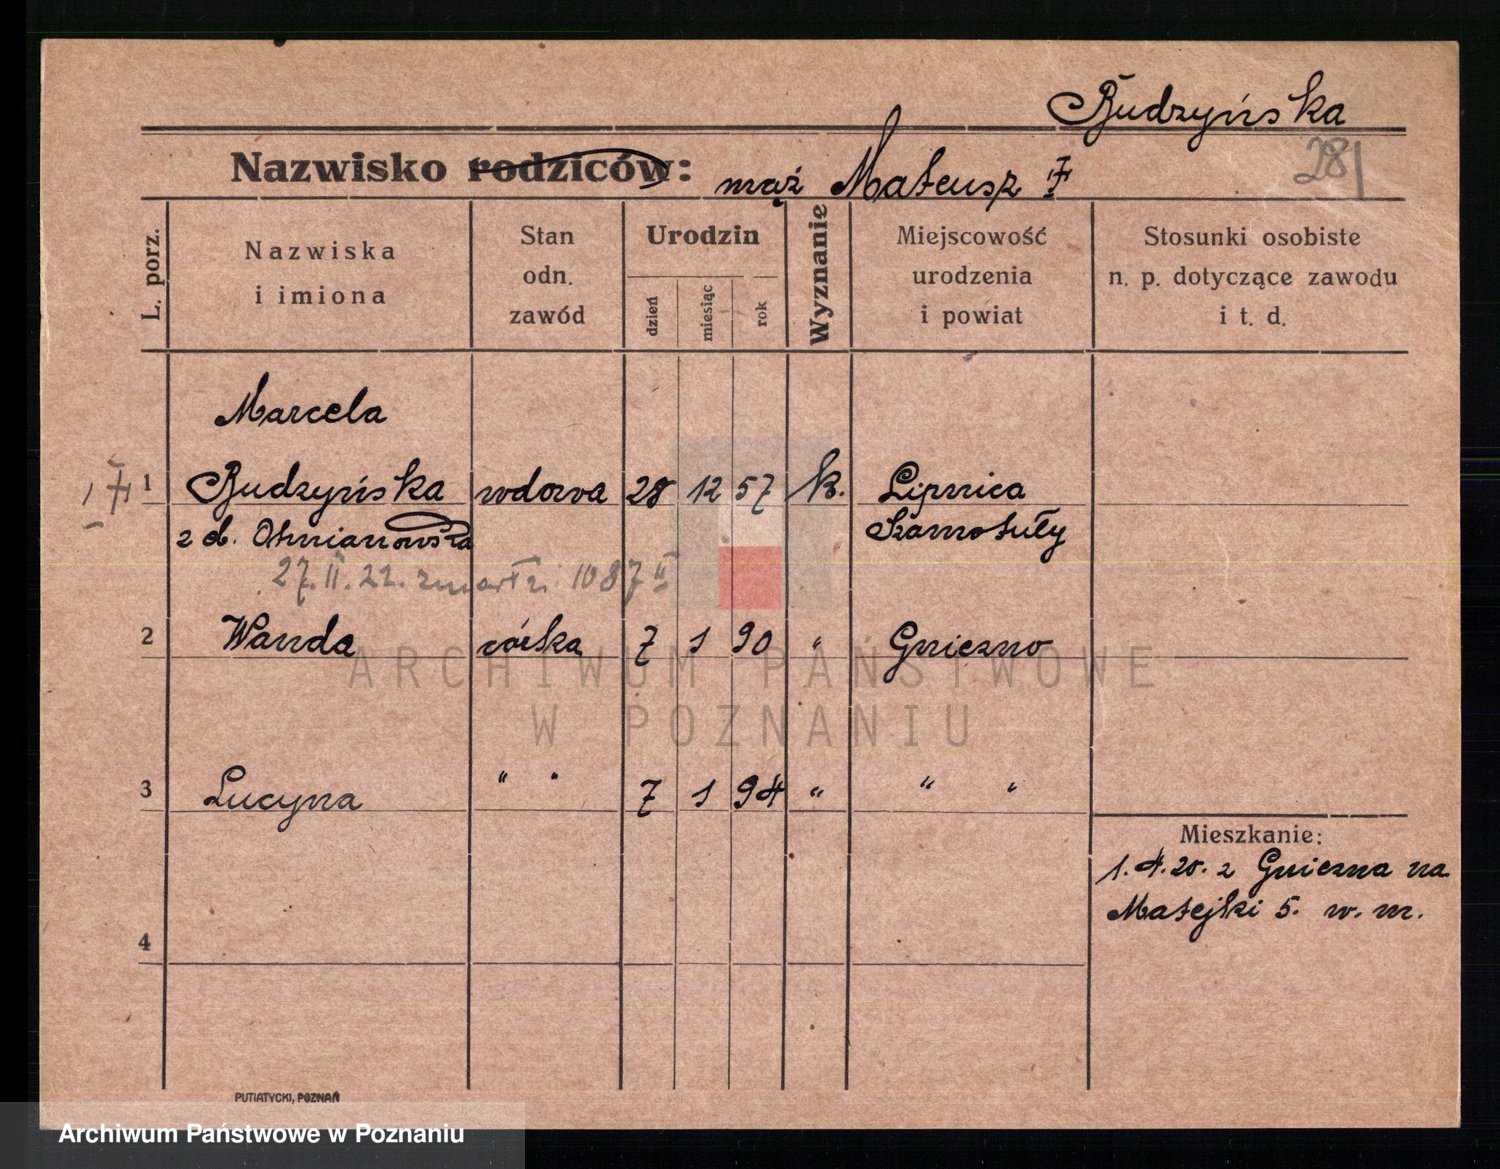 Budzyńska
Nazwisko rodziców: mąż Mateusz
281
L. porz.
Nazwiska
i imiona
Stan
odn.
zawód
Urodzin
dzień
miesiąc
rok
Wyznanie
Miejscowość
urodzenia
i powiat
Stosunki osobiste
n. p. dotyczące zawodu
i t. d.
Marcela
1 Budzyńska wdowa 28 12 57 k. Lipnica
z d. Otmianowska Szamotuły
27. II. 22. zmarła 1087 II
2 Wanda córka 7 1 90 " Gniezno
ARCHIWUM PAŃSTWOWE
W POZNANIU
3 Lucyna " " 7 1 94 " " "
Mieszkanie:
1. 4. 20. z Gniezna na
Matejki 5. w. m.
4
PUTIATYCKI, POZNAŃ
Archiwum Państwowe w Poznaniu